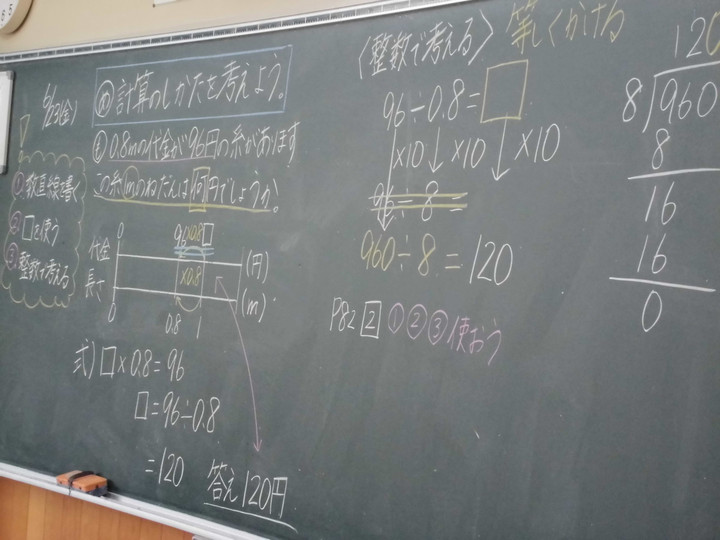 6/23(金)
め 計算のしかたを考えよう。
0.8mの代金が96円の糸があります
この糸1mのねだんは何円でしょうか。
①数直線書く
②□を使う
③整数で考える
0 96 ×0.8 □
代金 (円)
×0.8
長さ (m)
0 0.8 1
式)□×0.8=96
□=96÷0.8
=120 答え120円
〈整数で考える〉 等しくかける
96÷0.8=□
×10 ×10 ×10
96÷8=
960÷8=120
P82 2 ①②③使おう
120
8)960
8
16
16
0